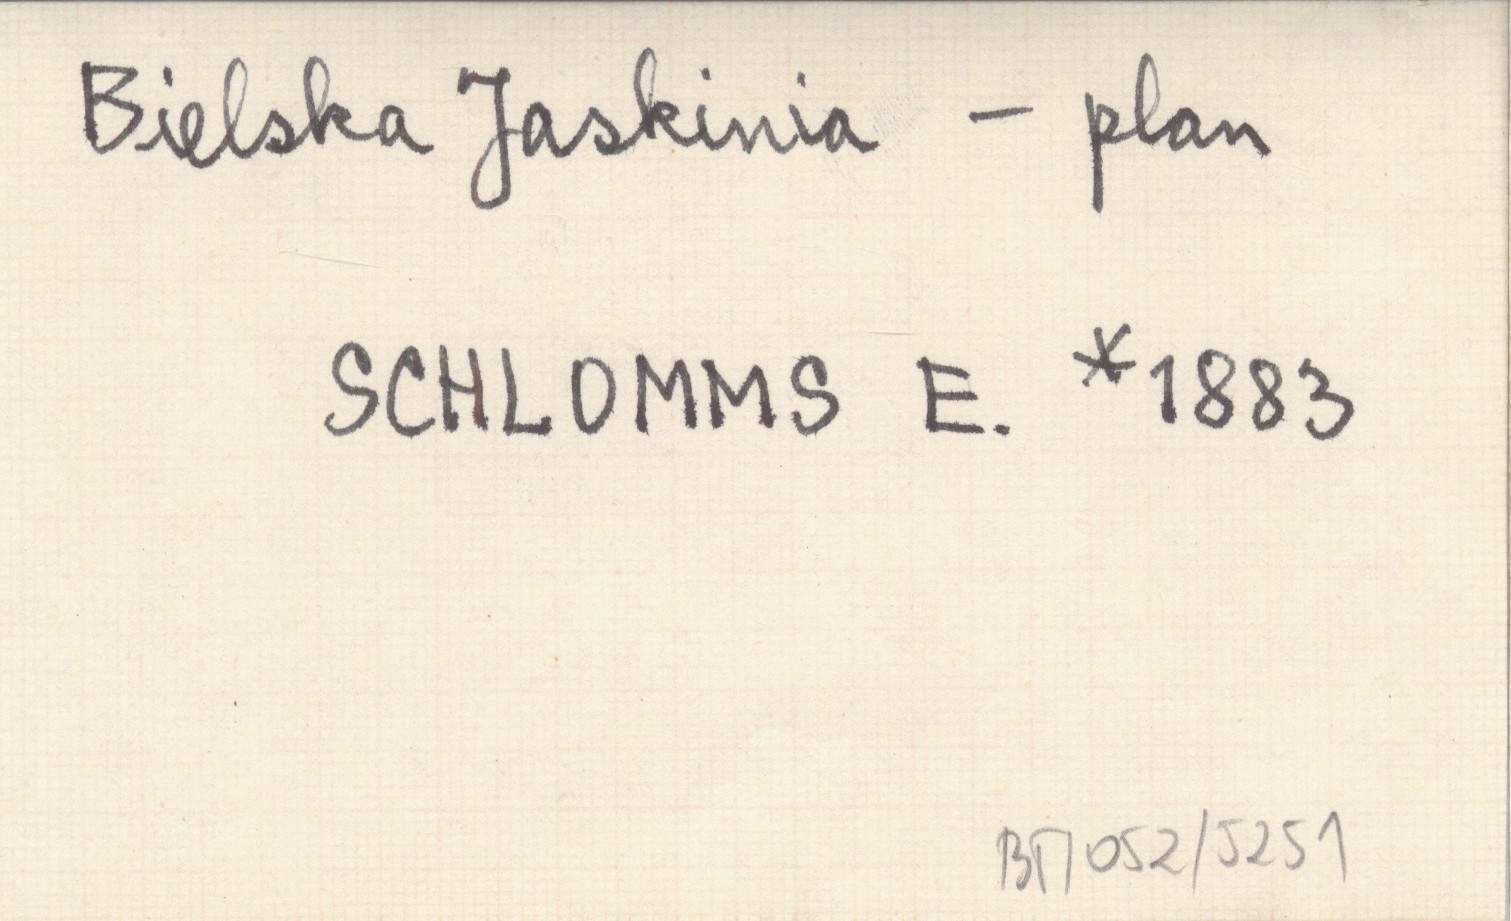 Bielska Jaskinia - plan
SCHLOMMS E. *1883
BΠ 052/5251